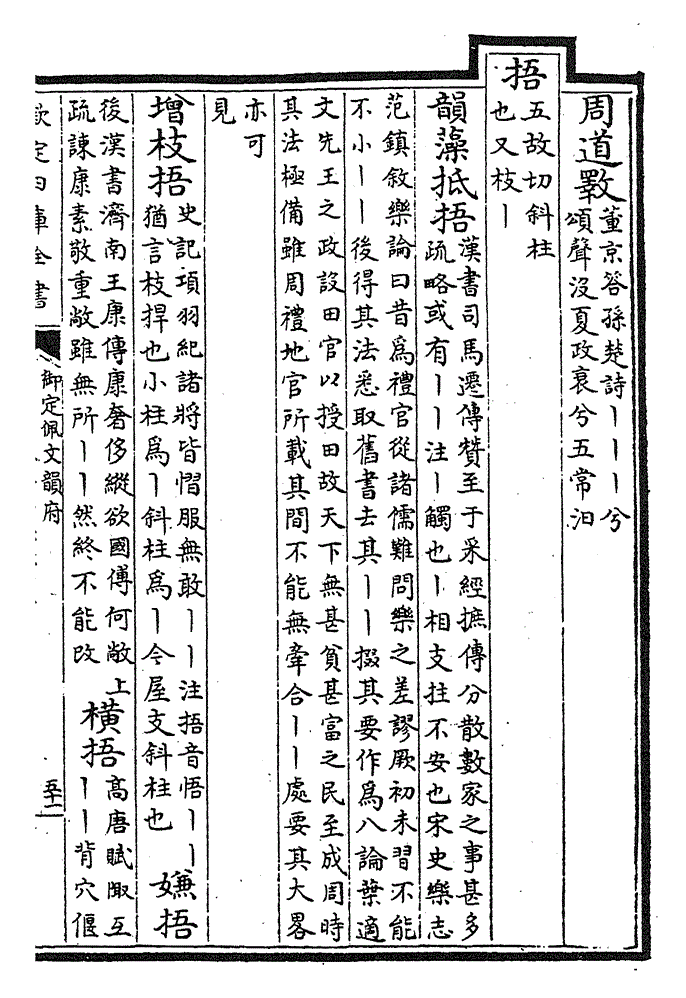 周道斁
董京答孫楚詩丨丨丨兮
頌聲沒夏政衰兮五常汩
捂
五故切斜柱
也又枝丨
韻藻抵捂
漢書司馬遷傳贊至于采經摭傳分散數家之事甚多
疏略或有丨丨注丨觸也丨相支拄不安也宋史樂志
范鎮敘樂論曰昔爲禮官從諸儒難問樂之差謬厥初未習不能
不小丨丨後得其法悉取舊書去其丨丨掇其要作爲八論葉適
文先王之政設田官以授田故天下無甚貧甚富之民至成周時
其法極備雖周禮地官所載其間不能無牽合丨丨處要其大畧
亦可
見
增枝捂
史記項羽紀諸將皆慴服無敢丨丨注捂音悟丨丨
猶言枝捍也小柱爲丨斜柱爲丨今屋支斜柱也
嫌捂
後漢書濟南王康傳康奢侈縱欲國傅何敞上
疏諫康素敬重敞雖無所丨丨然終不能改
橫捂
高唐賦陬互
丨丨背穴偃
欽定四庫全書
御定佩文韻府
五十二